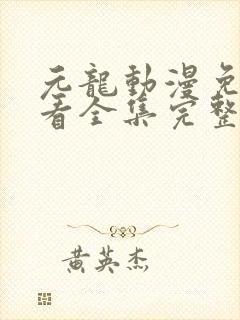 元龍動漫免
看全集完整
黄英杰